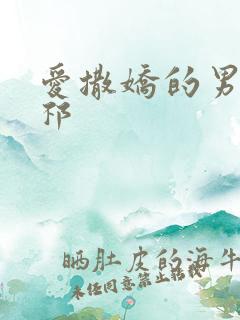 愛撒嬌的男
邪
晒肚皮的海牛
未经同意禁止转载